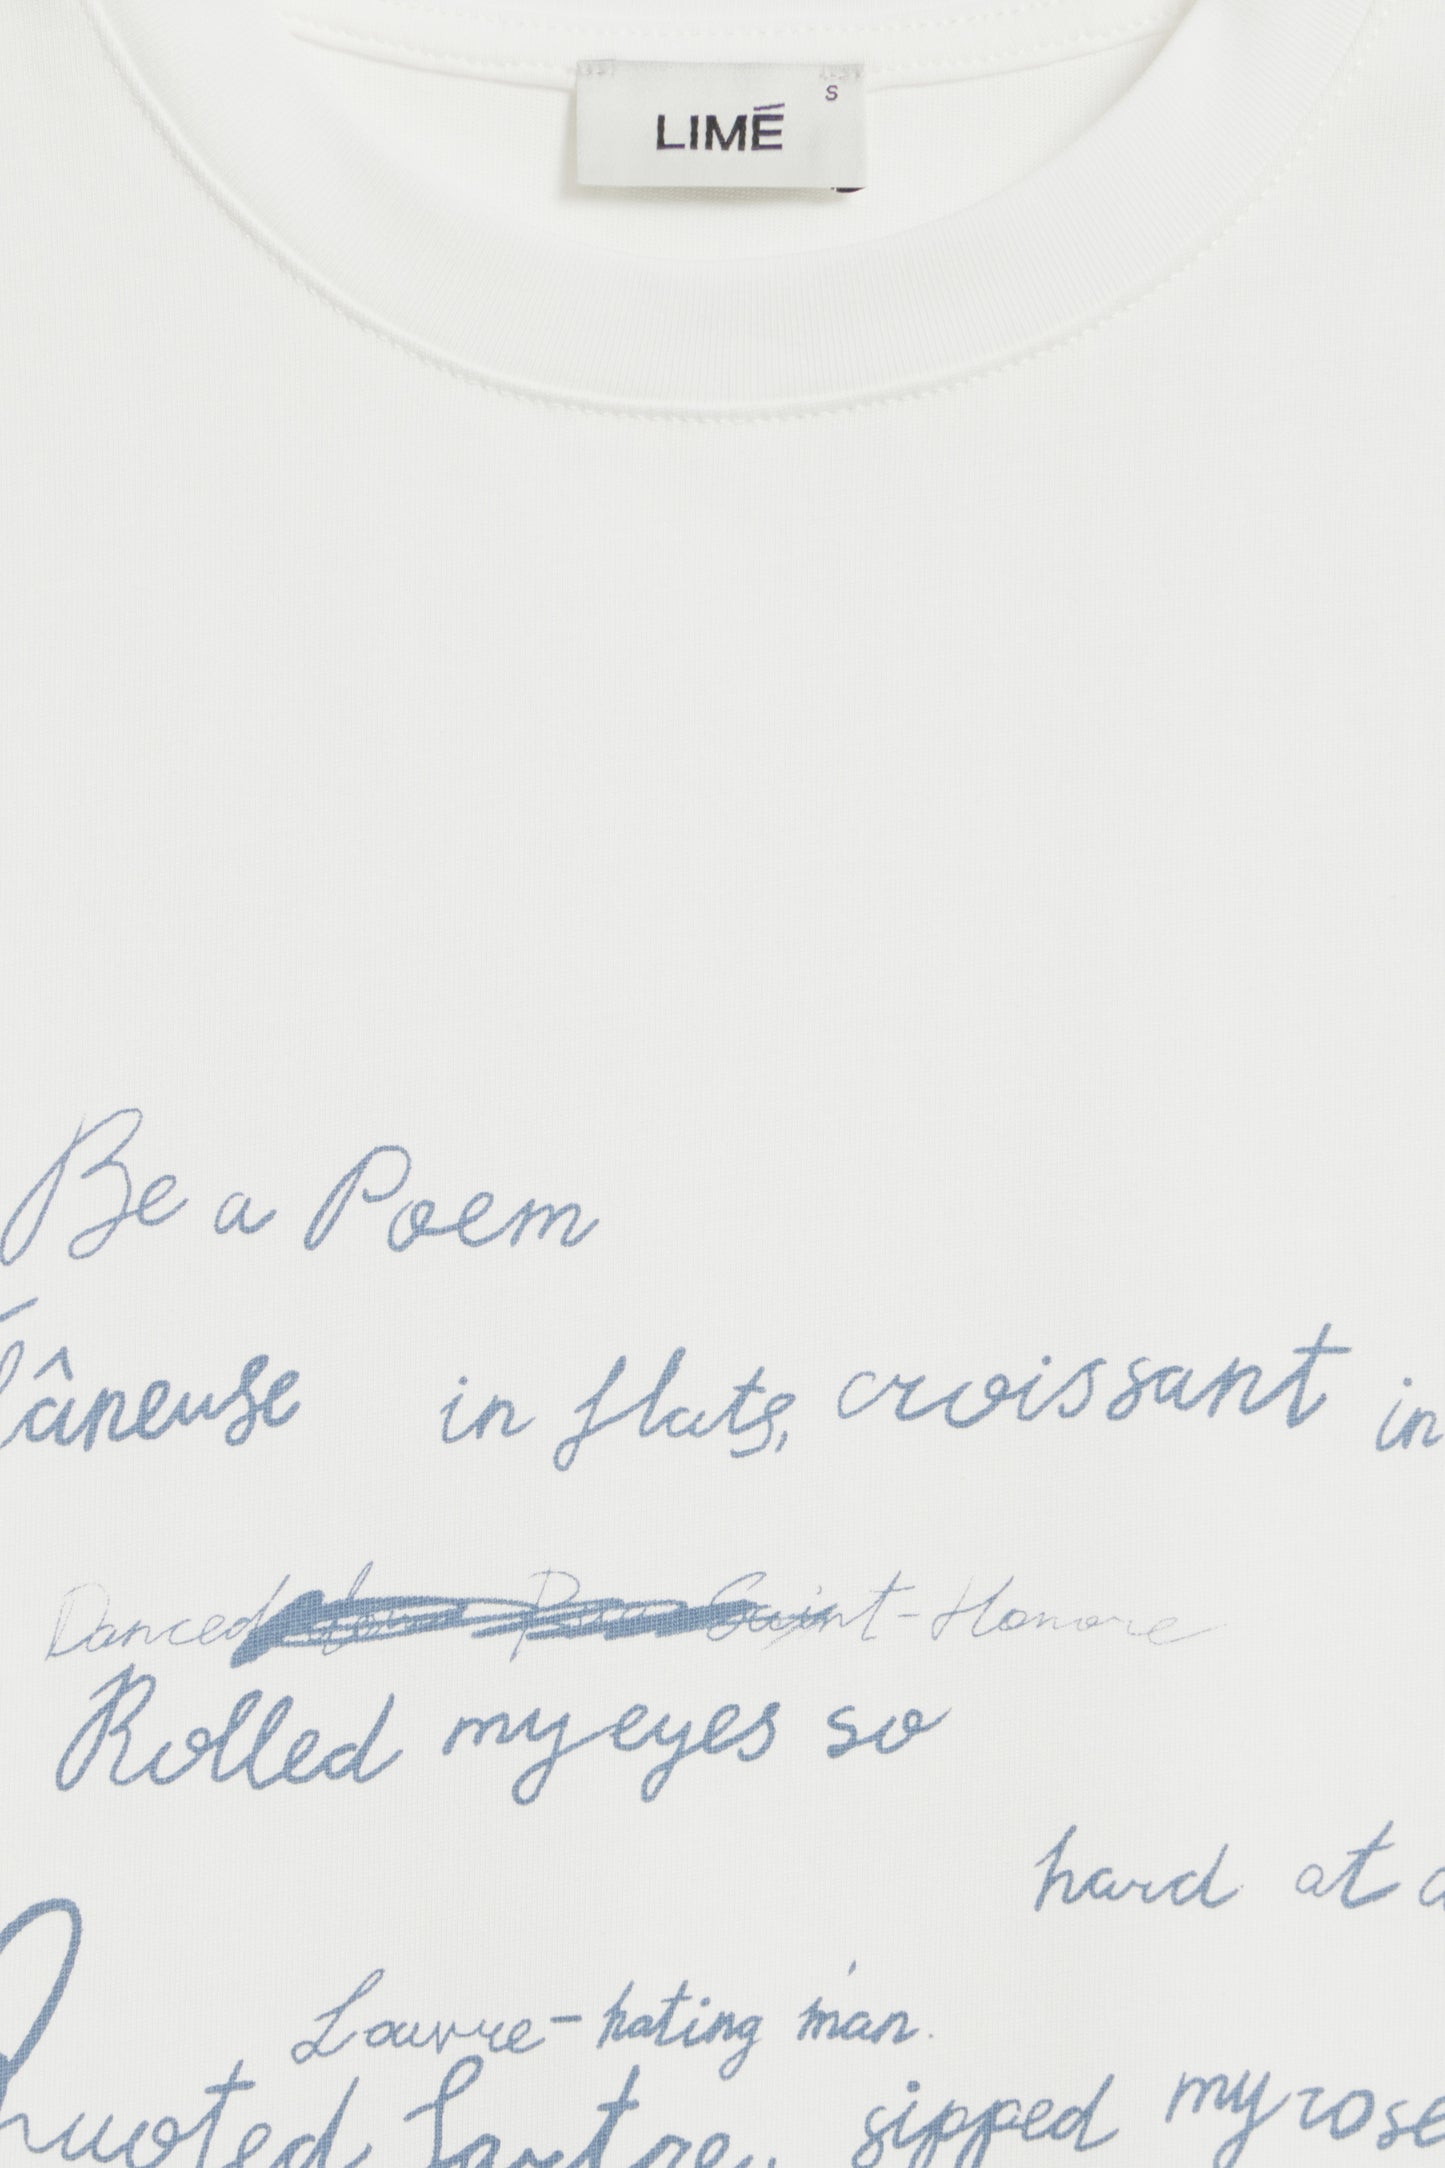 S
LIMÉ
Be a Poem
lâneuse in flats, croissant in
Danced down Rue Saint-Honore
Rolled my eyes so
hard at a
Louvre-hating man.
Quoted Sartre, sipped my rose